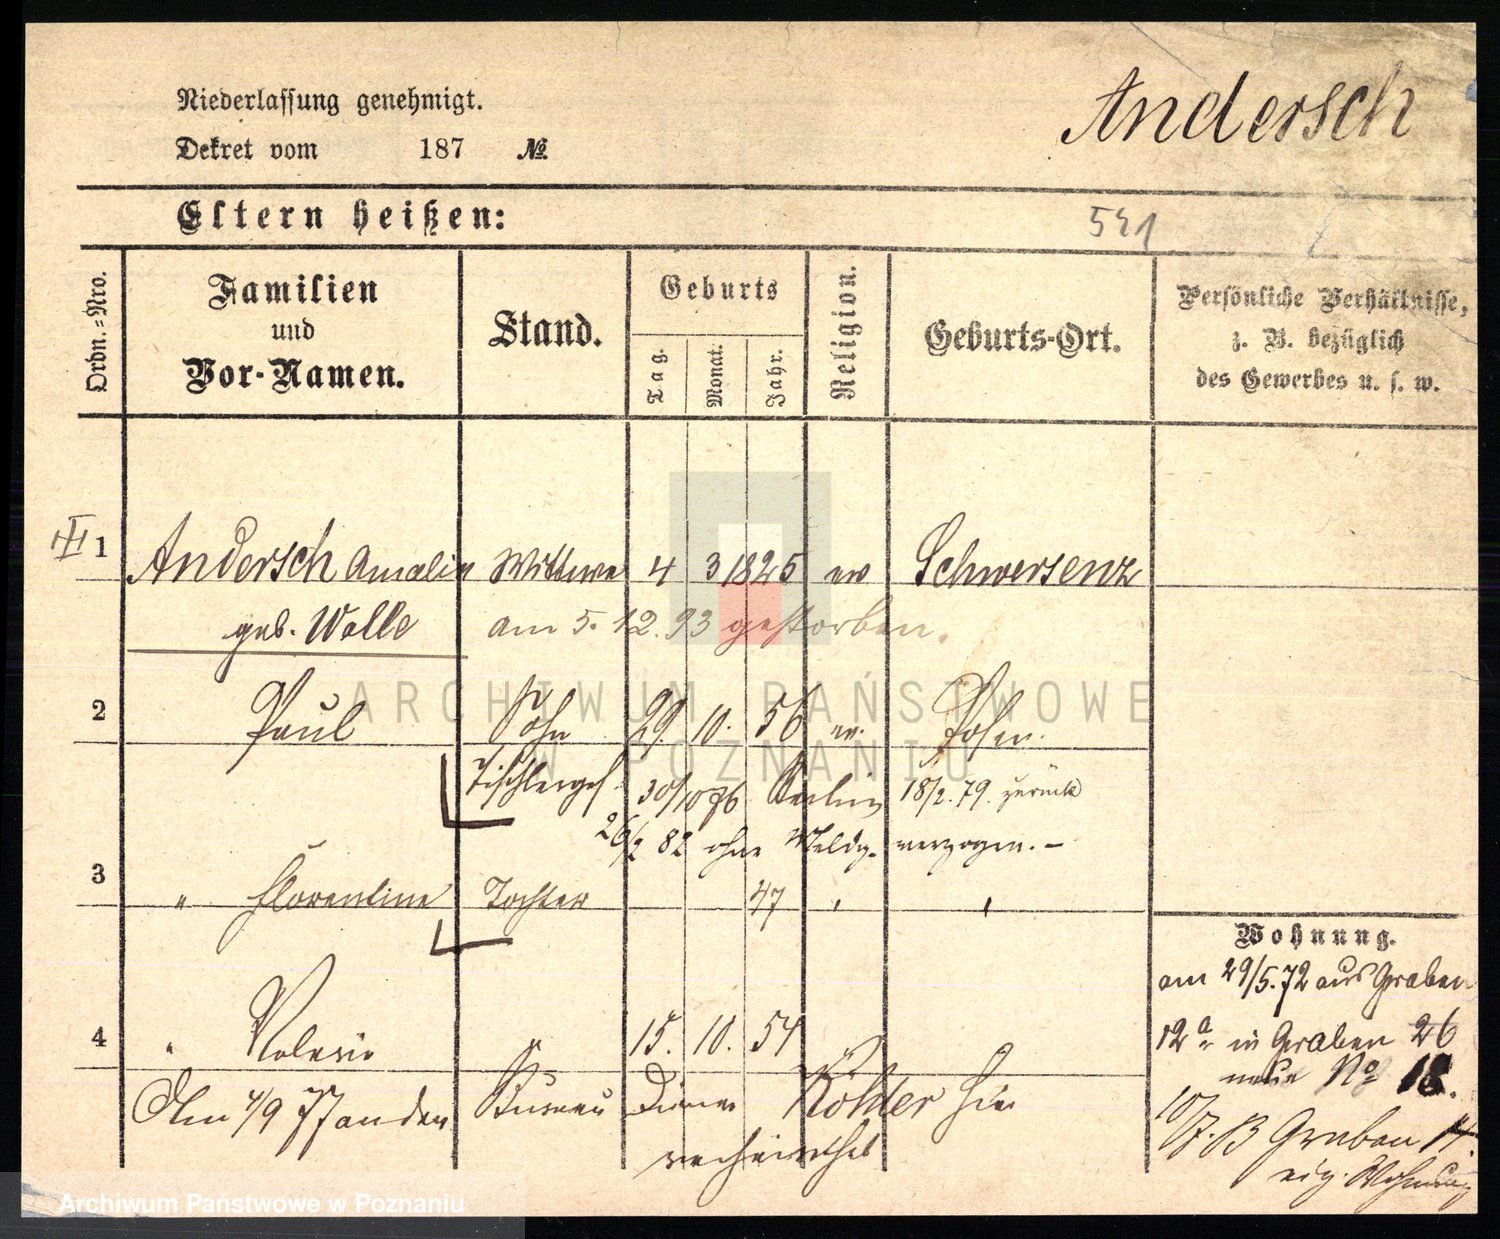 Niederlassung genehmigt.
Dekret vom 187 №
Andersch
Eltern heißen:
521
Ordn.=Nro.
Familien und Vor-Namen.
Stand.
Geburts
Tag.
Monat.
Jahr.
Religion.
Geburts-Ort.
Persönliche Verhältnisse,
z. B. bezüglich
des Gewerbes u. s. w.
III 1 Andersch Amalie Wittwe 4 3 1825 ev Schwersenz
geb. Wolle am 5. 12. 93 gestorben.
2 Paul Sohn 29. 10. 56 ev. Posen.
Tischlerges. 30/10 76 Berlin 18/2. 79. zurück
26/2 82 ohne Meldg. verzogen. –
3 " Florentine Tochter 47 " "
4 " Valerie 15. 10. 54
Am 4/9 77 an den Bureau Diener Köhler hier
verheirathet
Wohnung.
am 29/5. 72 aus Graben
12a in Graben 26
neue No 18.
10/7. B Graben 14.
eig. Wohnung
ARCHIWUM PAŃSTWOWE
W POZNANIU
Archiwum Państwowe w Poznaniu